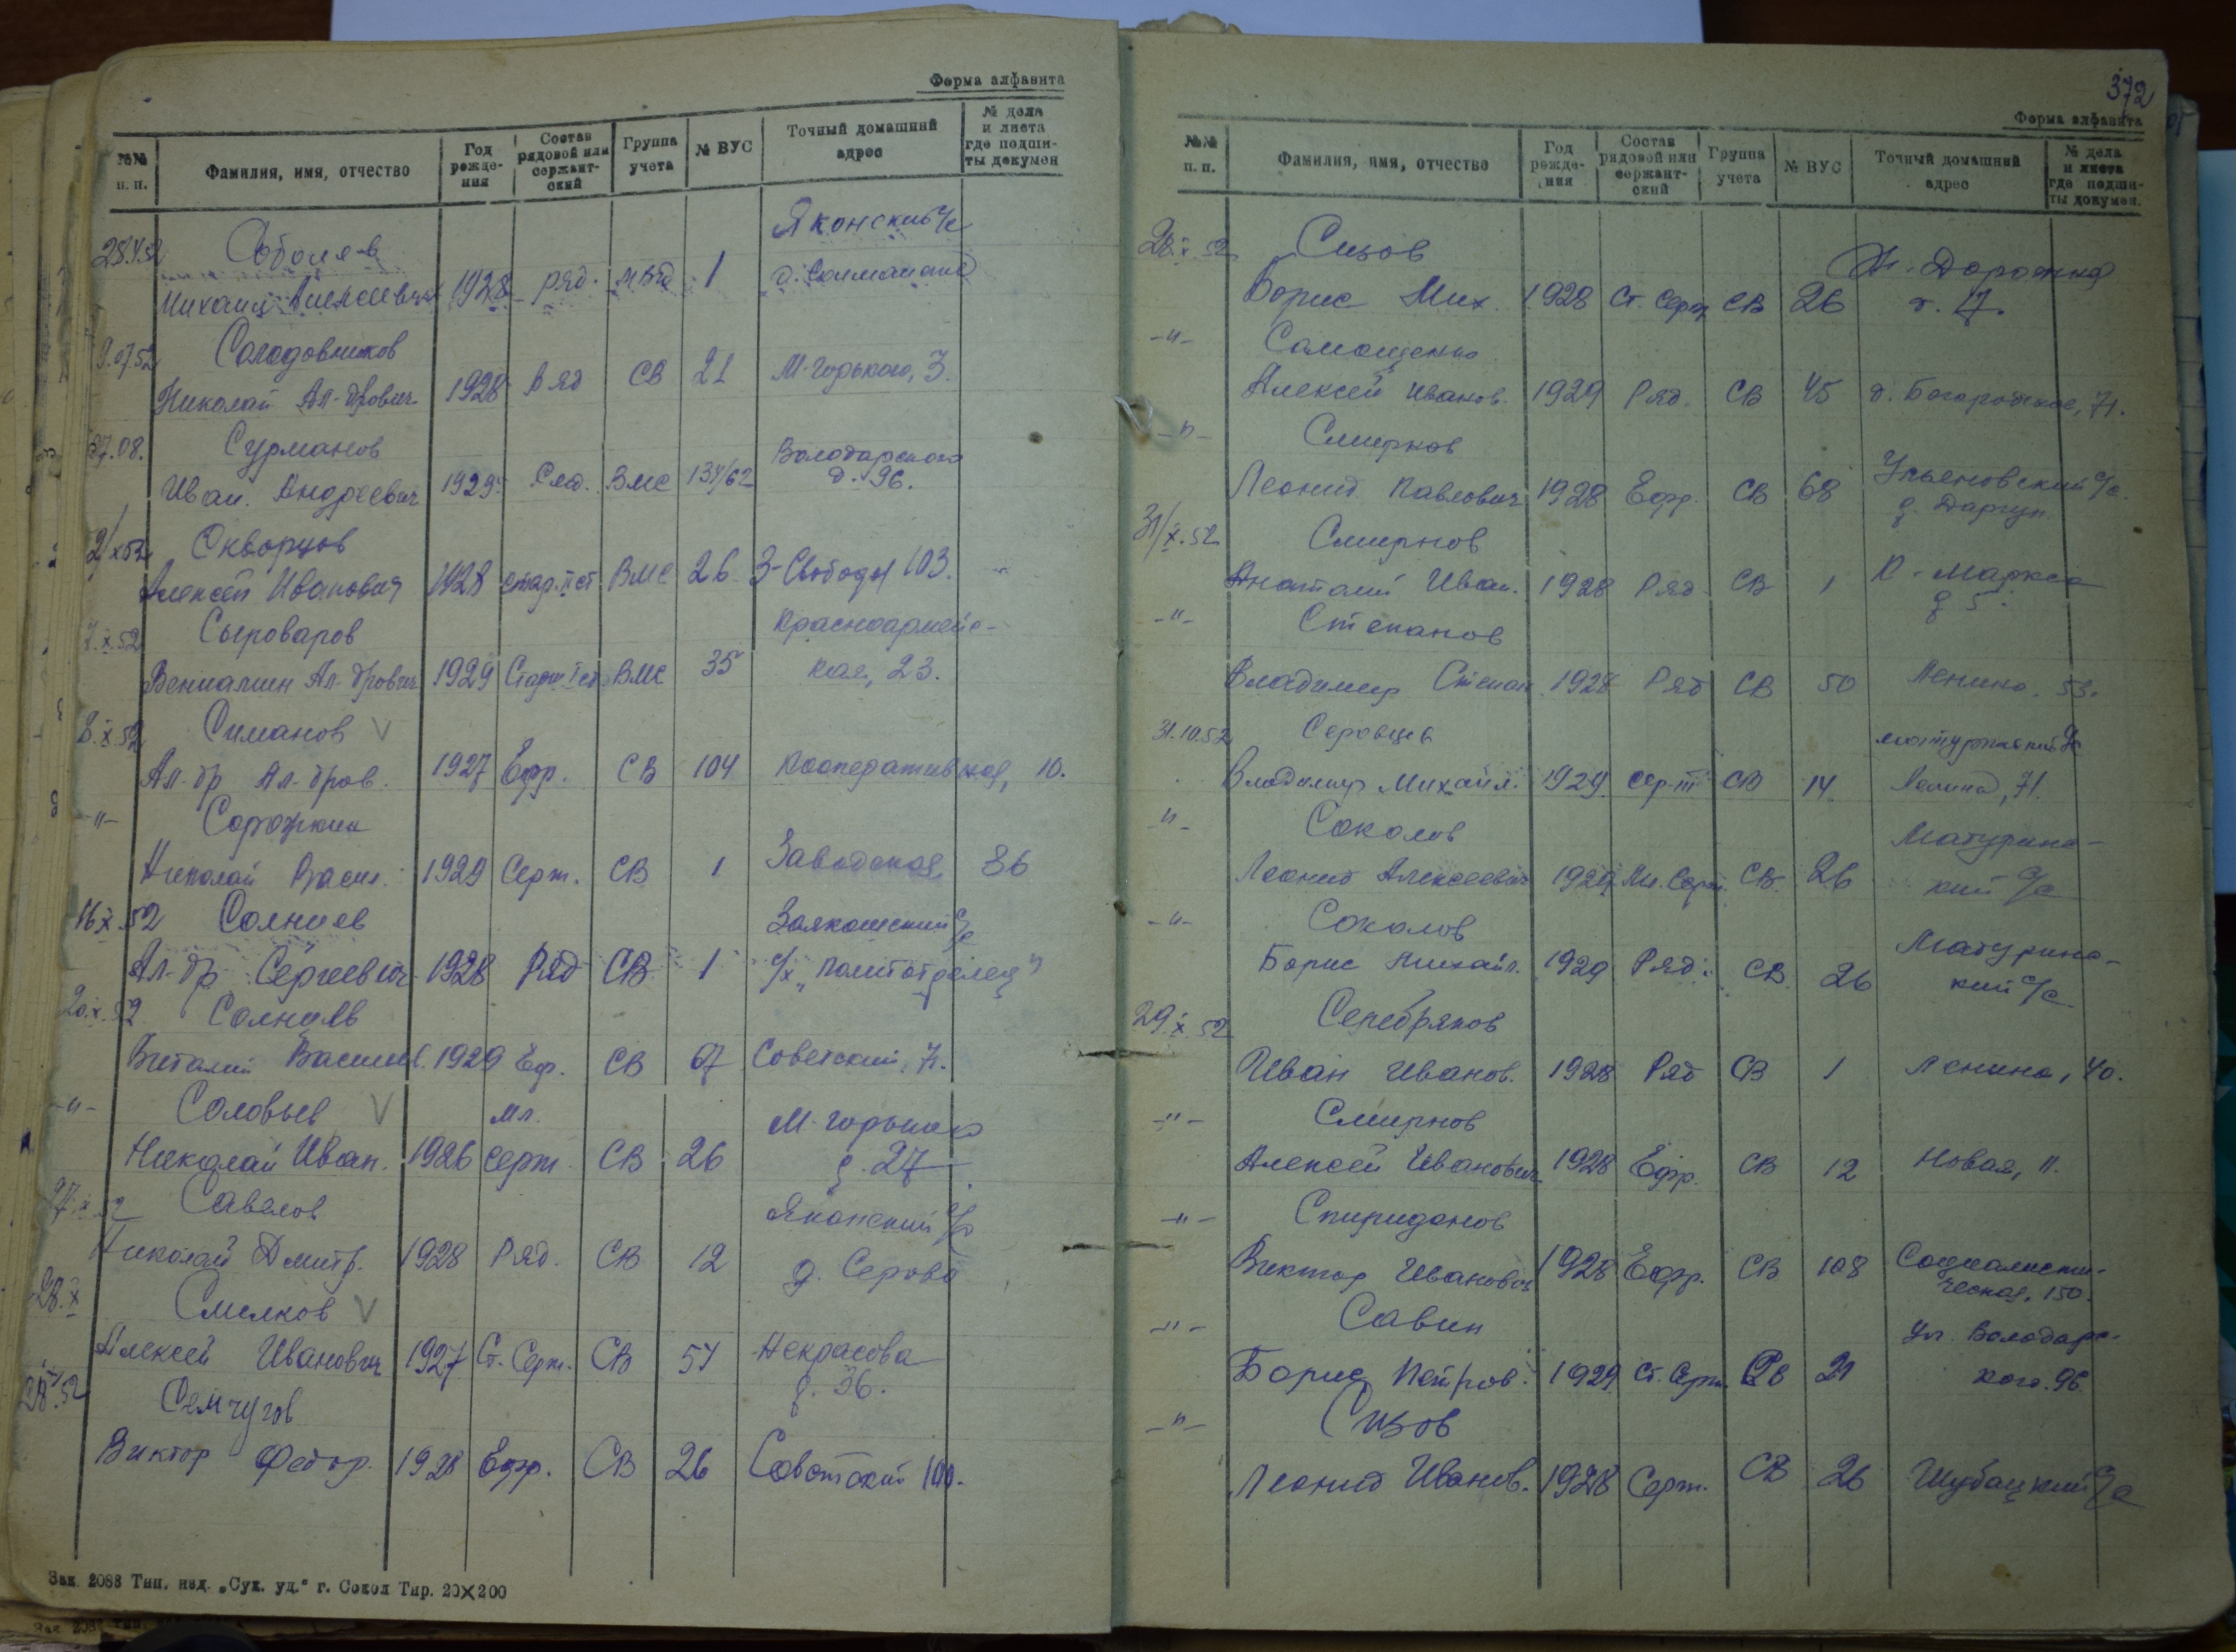 Форма алфавита
№№ п. п.
Фамилия, имя, отчество
Год рожде-ния
Состав рядовой или сержант-ский
Группа учета
№ ВУС
Точный домашний адрес
№ дела и листа где подши-ты докумен
28.4.52 Соболев Яконский с/с
Михаил Алексеевич 1928 ряд. МВД 1
9.07.52 Солодовников
Николай Ал-дрович 1928 Ряд СВ 21 М-Горького, 3.
27.08. Сурманов Володарского
Иван. Андреевич 1929 ВМС 134/62 д. 96.
2/X 52 Скворцов
Алексей Иванович 1928 стар. II ст. ВМС 26. 3-Свободы 103.
7.X.52 Сыроваров Красноармейс-
Вениамин Ал-дрович 1929 Старш I ст. ВМС 35 кая, 23.
8.X.52 Симанов V
Ал-др Ал-дров. 1927 Ефр. СВ 104 Кооперативная, 10.
-"- Сорожкин
Николай Васил. 1929 Серж. СВ 1 Заводская, 86
16 X.52 Солнцев с/с
Ал-др Сергеевич 1928 Ряд СВ 1 с/х „Политотделец"
20.X.52 Солнцев
Виталий Васильев. 1929 Еф. СВ 67 Советский, 71.
-"- Соловьев V мл. М-Горького
Николай Иван. 1926 серж. СВ 26 д. 27
27.X.52 Савелов Яконский с/с
Николай Дмитр. 1928 Ряд. СВ 12 д. Серово
28.X Смелков V
Алексей Иванович 1927 Ст. Серж. СВ 54 Некрасова
д. 36.
28.X.52 Семчугов
Виктор Федор. 1928 Ефр. СВ 26 Советский 100.
Зак. 2088 Тип. изд. „Сух. уд." г. Сокол Тир. 20×200
372
Форма алфавита
№№ п. п.
Фамилия, имя, отчество
Год рожде-ния
Состав рядовой или сержант-ский
Группа учета
№ ВУС
Точный домашний адрес
№ дела и листа где подши-ты докумен.
28.X.52 Сизов
Борис Мих. 1928 Ст. Серж СВ 26 д. 17.
-"- Самощенко
Алексей Иванов. 1929 Ряд. СВ 45 д. Богородское, 71.
-"- Смирнов
Леонид Павлович 1928 Ефр. СВ 68 Ульяновский с/с.
31/X.52 Смирнов
Анатолий Иван. 1928 Ряд СВ 1 К-Маркса
д 5.
-"- Степанов
Владимир Степан. 1928 Ряд СВ 50 Ленина, 53.
31.10.52 Серовцев
Владимир Михайл. 1929 сер-т СВ 14. Ленина, 71.
-"- Соколов Матуринс-
Леонид Алексеевич 1929 Мл. Серж. СВ. 26 кий с/с
-"- Соколов Матуринс-
Борис Михайл. 1929 Ряд. СВ 26 кий с/с.
29.X.52 Серебряков
Иван Иванов. 1928 Ряд СВ 1 Ленина, 40.
-"- Смирнов
Алексей Иванович 1928 Ефр. СВ 12 Новая, 11.
-"- Спиридонов
Виктор Иванович 1928 Ефр. СВ 108 Социалисти-
ческая, 150.
-"- Савин ул. Володарс-
Борис Петров. 1929 Ст. Серж. СВ 21 кого. 96.
-"- Сизов
Леонид Иванов. 1928 Серж. СВ 26 Шубацкий с/с